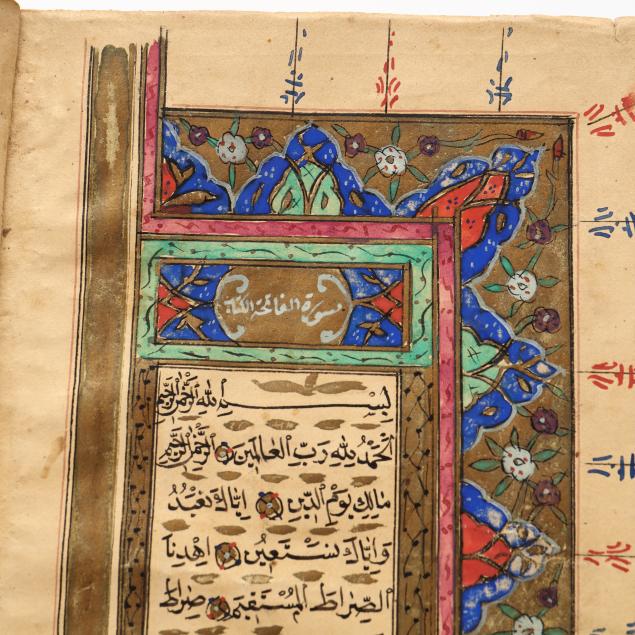 سورة الفاتحة الكتاب
بسم الله الرحمن الرحيم
اَلْحَمْدُ لِلهِ رَبِّ الْعَالَمِينَ الرَّحْمٰنِ الرَّحِيمِ
مَالِكِ يَوْمِ الدِّينِ اِيَّاكَ نَعْبُدُ
وَاِيَّاكَ نَسْتَعِينُ اِهْدِنَا
الصِّرَاطَ الْمُسْتَقِيمَ صِرَاطَ